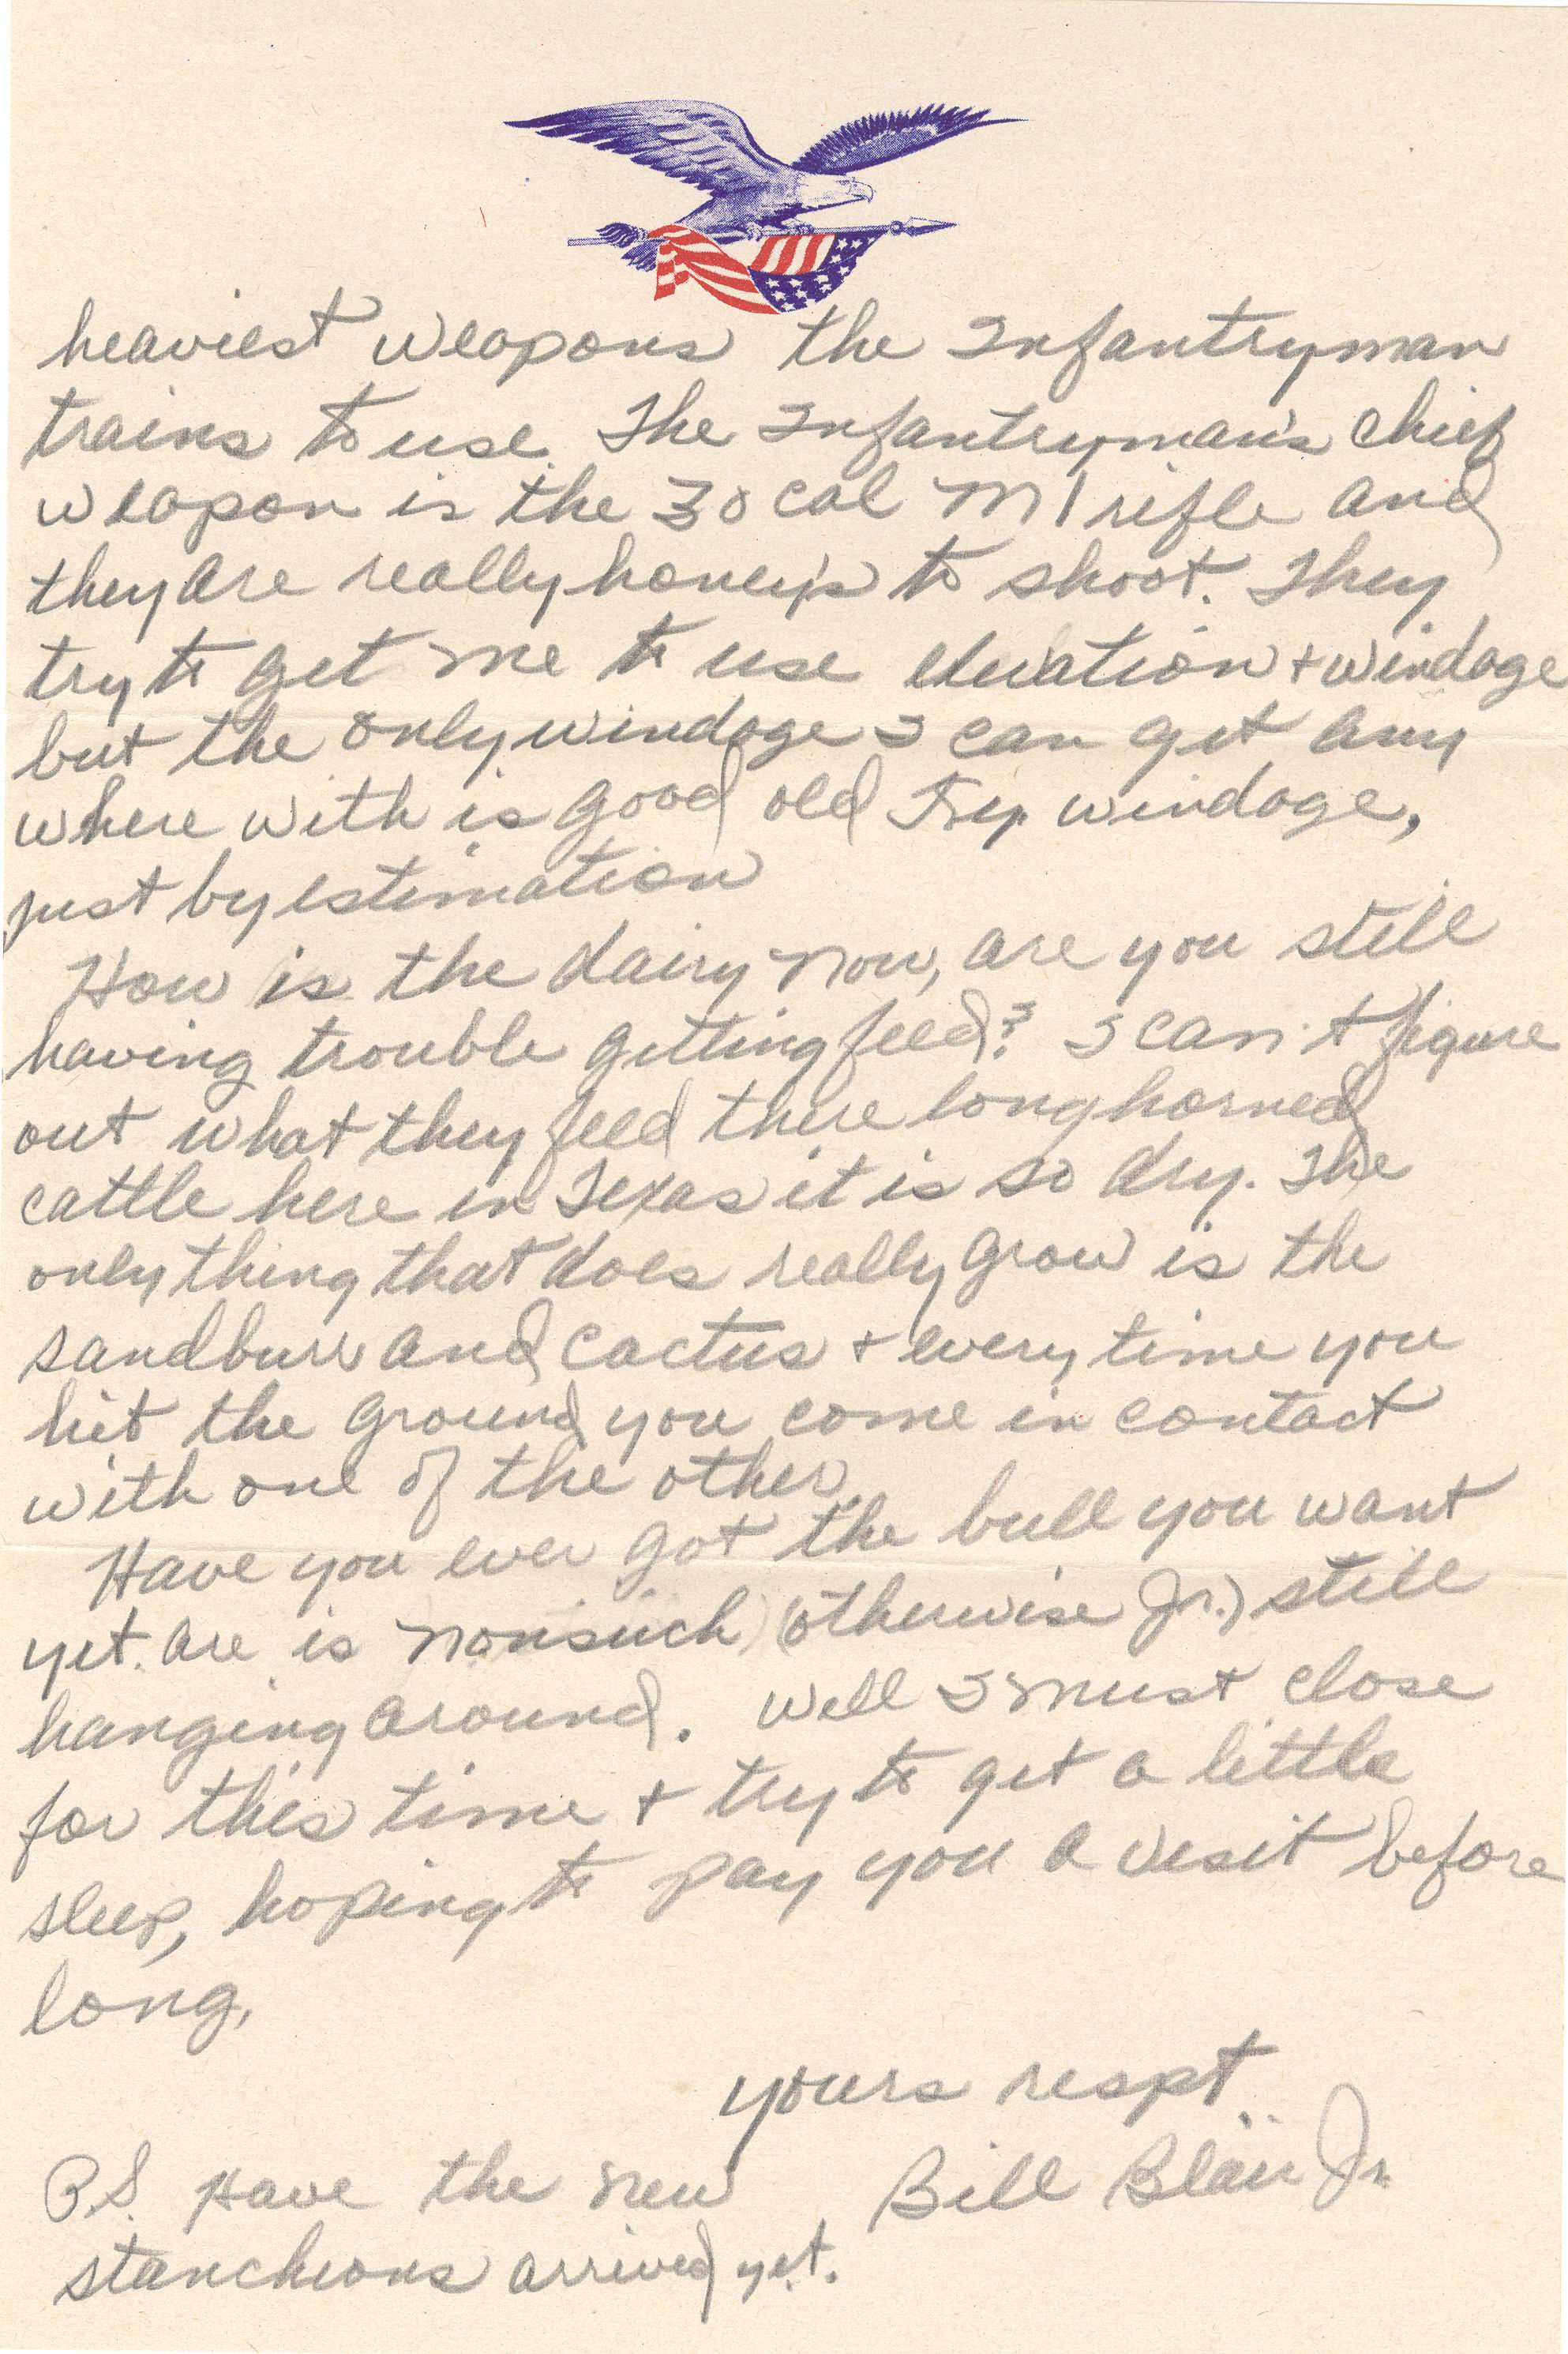 heaviest weapons the Infantryman
trains to use. The Infantryman's chief
weapon is the 30 cal M1 rifle and
they are really honey's to shoot. They
try to get me to use elevation + windage
but the only windage I can get any
where with is good old windage,
just by estimation
How is the dairy now, are you still
having trouble getting feed? I can't figure
out what they feed these longhorned
cattle here in Texas it is so dry. The
only thing that does really grow is the
sandburr and cactus + every time you
hit the ground you come in contact
with one of the other.
Have you ever got the bull you want
yet. are is Nonsuch (otherwise Jr.) still
hanging around. Well I must close
for this time + try to get a little
sleep, hoping to pay you a visit before
long.
yours respt.
Bill Blair Jr.
P.S. Have the new
stancheons arrived yet.